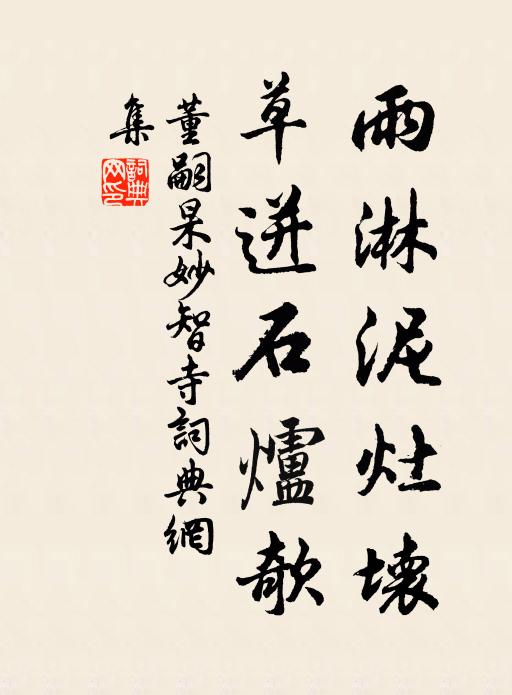 雨淋泥灶壞
草迸石爐欹
董嗣杲妙智寺詞典網
集
詞典網印